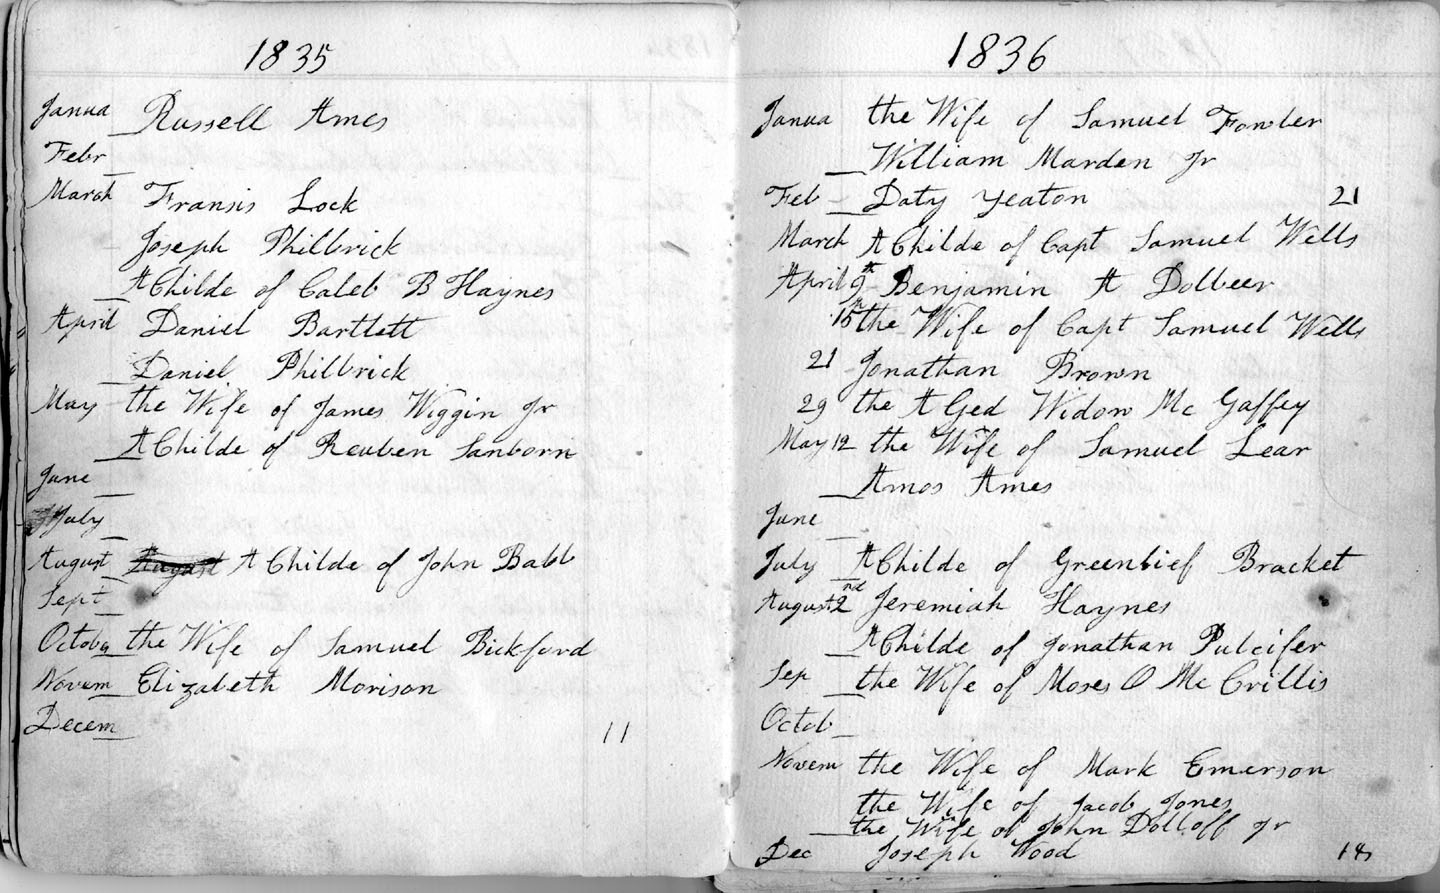 1835
Janua Russell Ames
Febr
March Fransis Lock
Joseph Philbrick
A Childe of Caleb B Haynes
April Daniel Bartlett
Daniel Philbrick
May the Wife of James Wiggin Jr
A Childe of Reuben Sanborn
June
July
August August A Childe of John Babb
Sept
Octobr the Wife of Samuel Bickford
Novem Elizabeth Morison
Decem
11
1836
Janua the Wife of Samuel Fowler
William Marden Jr
Feb Daty Yeaton 21
March A Childe of Capt Samuel Wells
April 9th Benjamin A Dolbeer
15th the Wife of Capt Samuel Wells
21 Jonathan Brown
29 the A Ged Widow Mc Gaffey
May 12 the Wife of Samuel Lear
Amos Ames
June
July A Childe of Greenlief Bracket
August 2nd Jeremiah Haynes
A Childe of Jonathan Pulcifer
Sep the Wife of Moses O Mc Crillis
Octob
Novem the Wife of Mark Emerson
the Wife of Jacob Jones
the Wife of John Dolloff Jr
Dec Joseph Wood